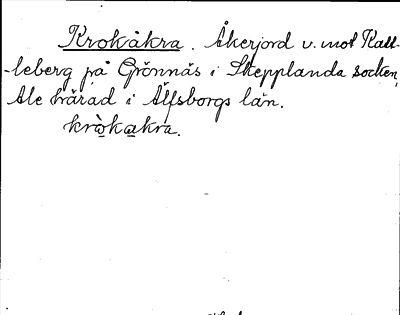 Krokåkra. Åkerjord v. mot Katt-
-leberg på Grönnäs i Skepplanda socken,
Ale härad i Älfsborgs län.
kròkakra.